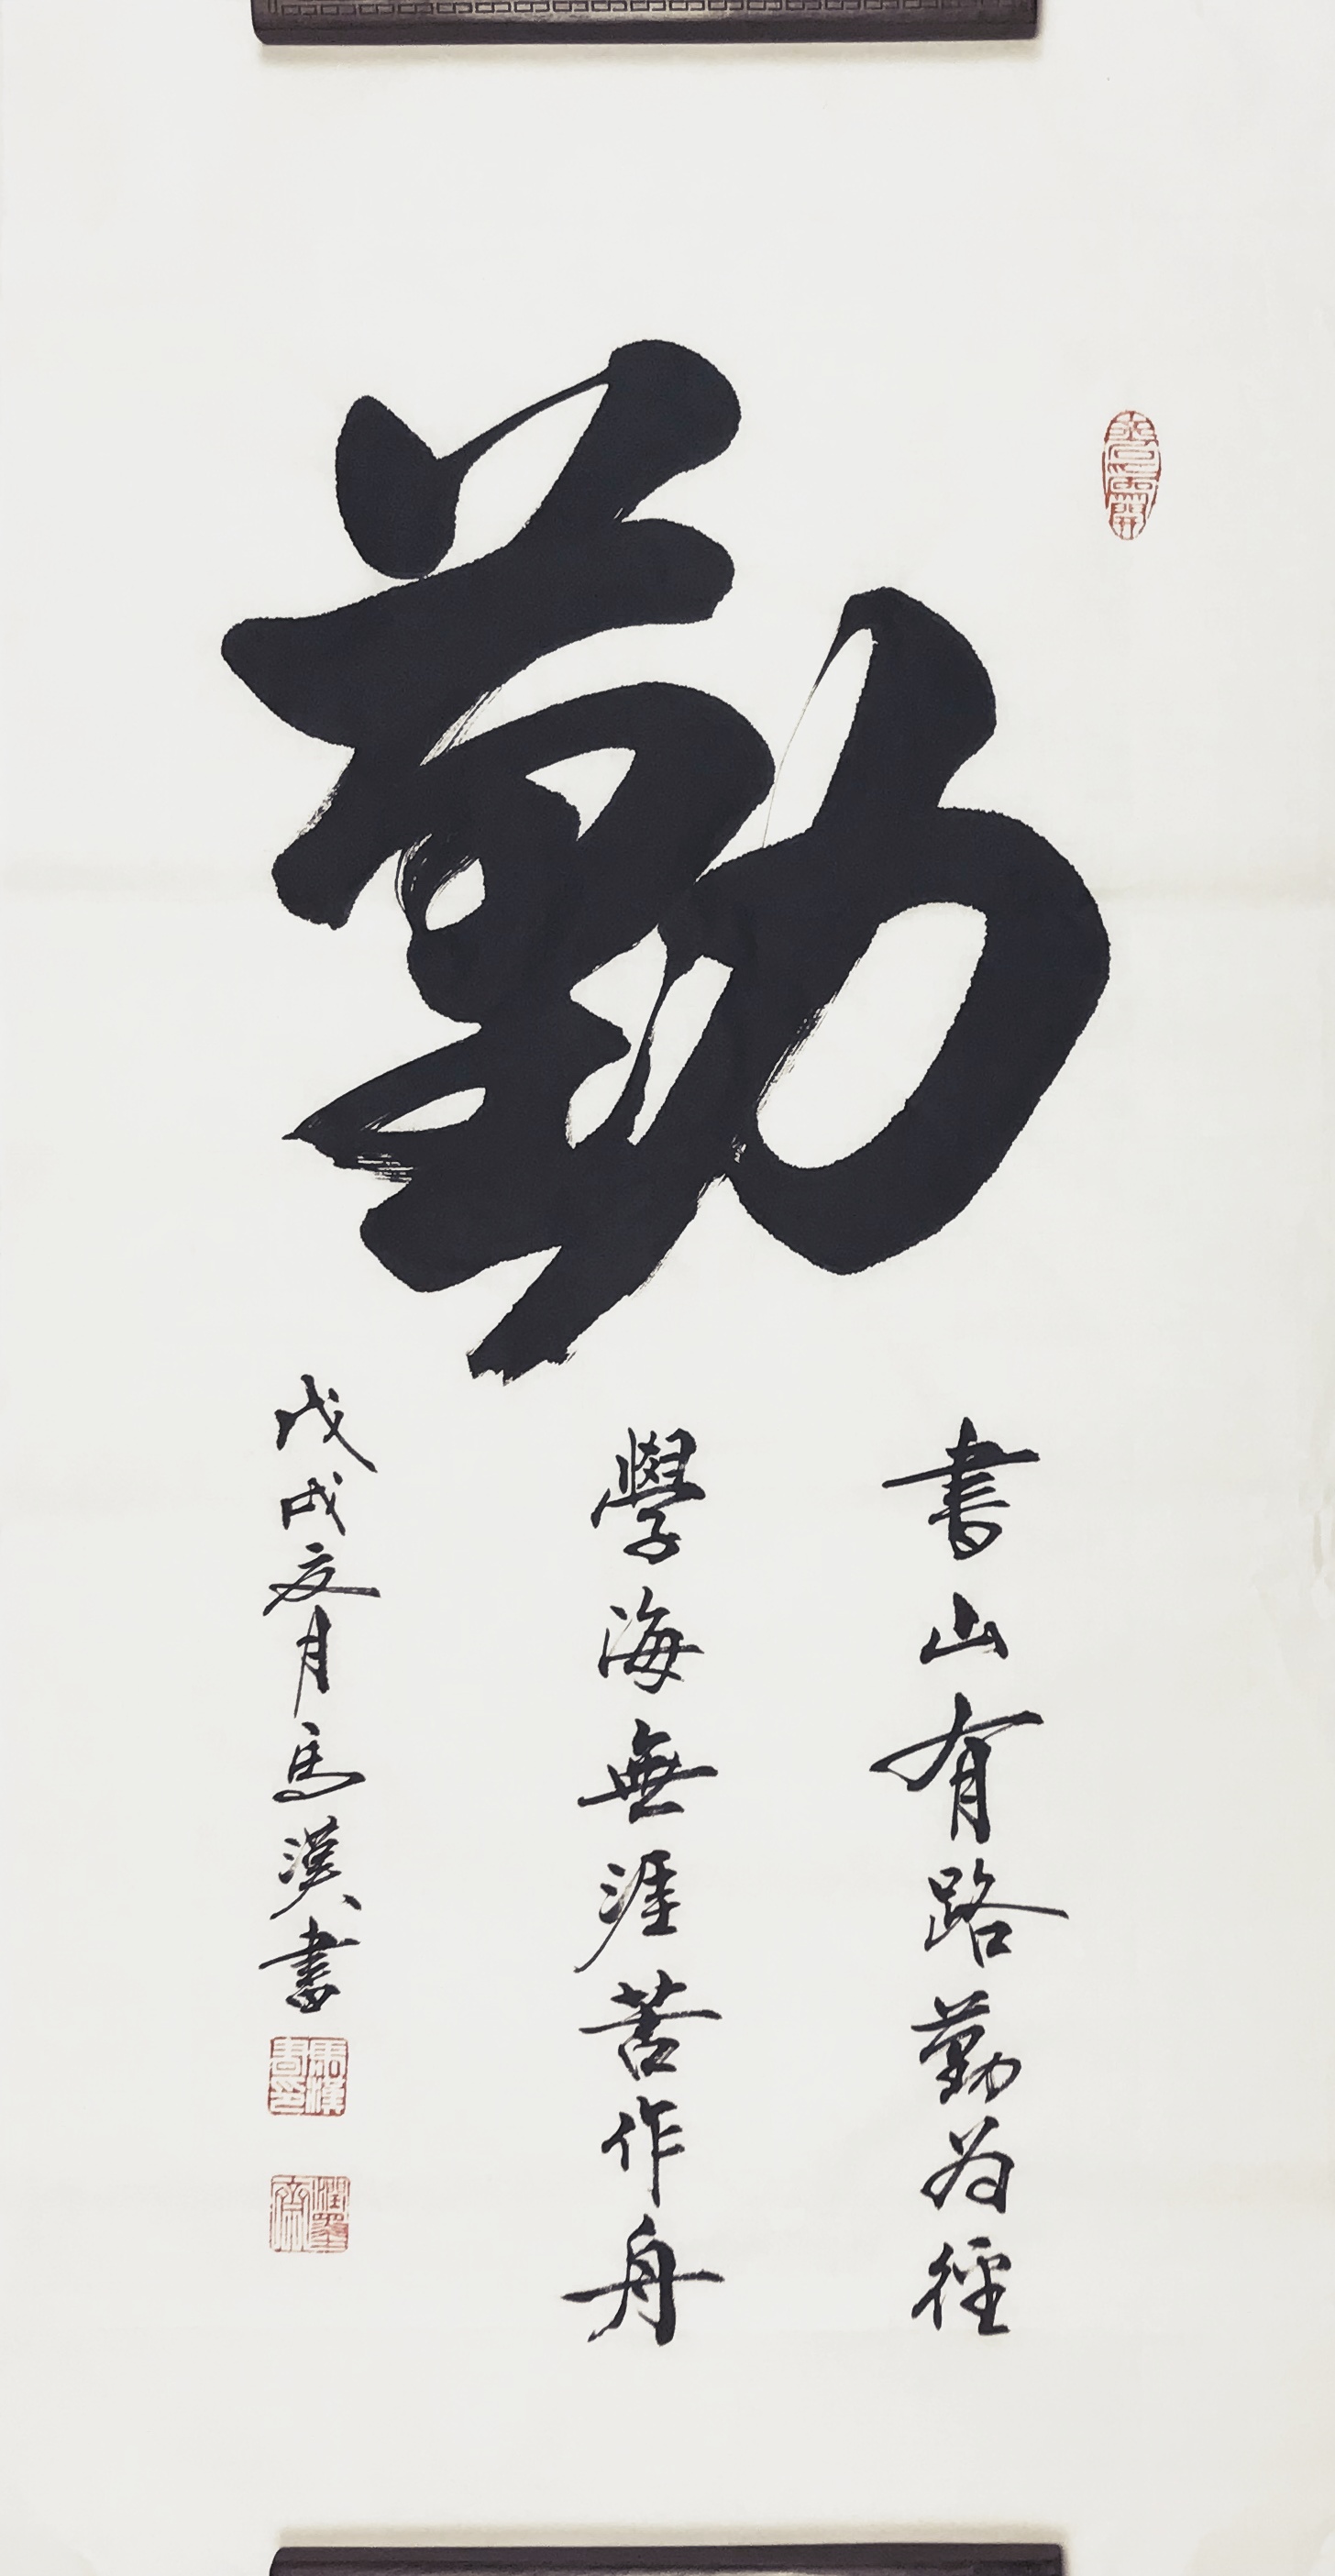 勤
書山有路勤為徑
學海無涯苦作舟
戊戌夏月馬漢書